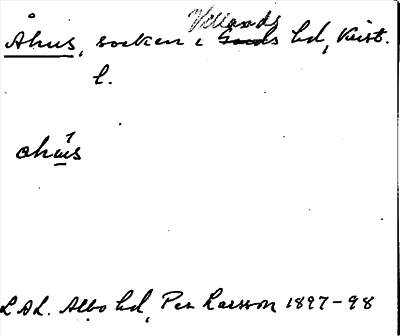 Åhus, socken i Villands hd, Krist.
l.
ohús
LAL. Albo hd, Per Larsson 1897-98